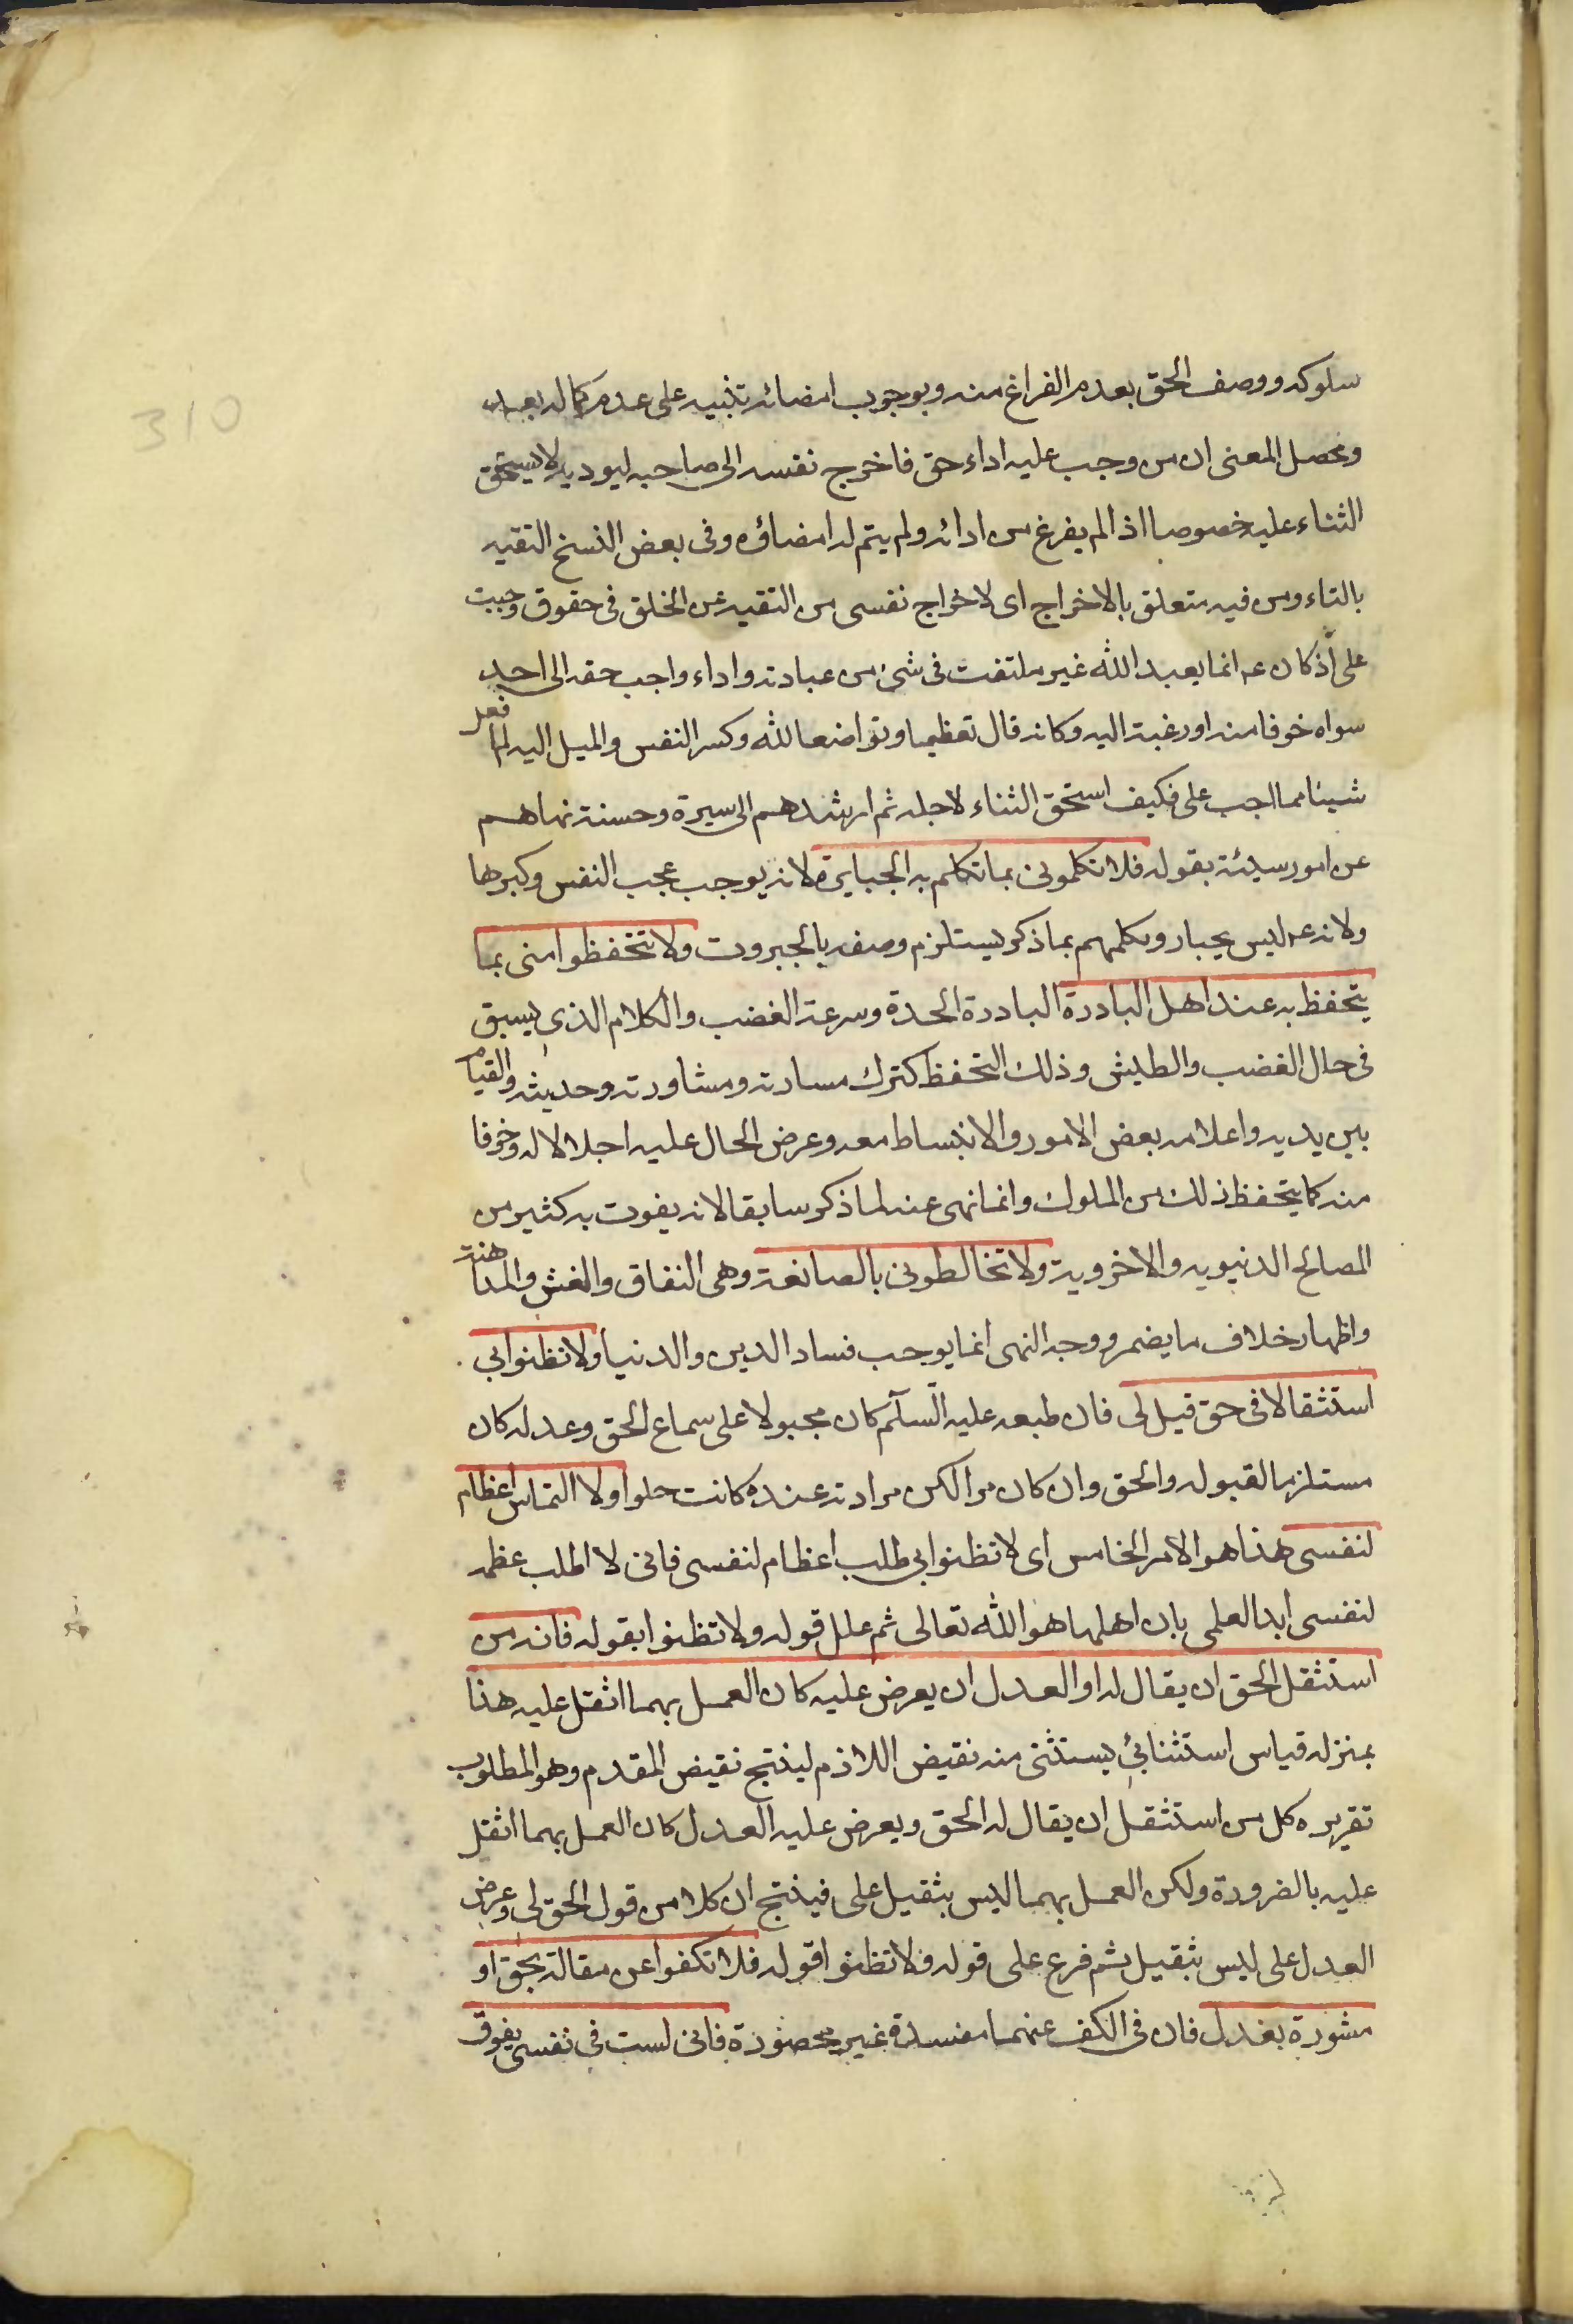 310
سلوكه ووصف الحق بعدم الفراغ منه وبوجوب امضائه تنبيه على عدم كماله بعد
ومحصل المعنى ان من وجب عليه اداء حق فاخرج نفسه الى صاحبه ليوديه لا يستحق
الثناء عليه خصوصا اذا لم يفرغ من ادائه ولم يتم له امضاؤه وفى بعض النسخ التقيه
بالتاء ومن فيه متعلق بالاخراج اى لاخراج نفسى من التقيه عن الخلق فى حقوق وجبت
على اذ كان عم انما يعبد الله غير ملتفت فى شئ من عبادته واداء واجب حقه الى احد
سواه خوفا منه او رغبة اليه وكانه قال تعظيما وتواضعا لله وكسر النفس والميل اليه لم افعل
شيئا مما الجب على فكيف استحق الثناء لاجله ثم ارشدهم الى سيرة وحسنة نهاهم
عن امور سيئة بقوله فلا تكلمونى بما تكلم به الجبابرة لانه يوجب عجب النفس وكبرها
ولانه عم ليس بجبار وتكلمهم بما ذكر يستلزم وصفه بالجبروت ولا تتحفظوا منى بما
يتحفظ به عند اهل البادرة البادرة الحدة وسرعة الغضب والكلام الذى يسبق
فى حال الغضب والطيش وذلك التحفظ كترك مسارته ومشاورته وحديثه والقيام
بين يديه واعلامه بعض الامور والانبساط معه وعرض الحال عليه اجلالا له وخوفا
منه كما يتحفظ ذلك من الملوك وانما نهى عنه لما ذكر سابقا لانه يفوت به كثير من
المصالح الدنيويه والاخروية ولا تخالطونى بالصانعة وهى النفاق والغش والمداهنة
واظهار خلاف ما يضمر ووجه النهى انما يوجب فساد الدين والدنيا ولا تظنوا بى
استثقالا فى حق قيل لى فان طبعه عليه السلام كان مجبولا على سماع الحق وعدله كان
مستلزما لقبوله والحق وان كان مرا لكن مرارته عنده كانت حلوا ولا التماس اعظام
لنفسى هذا هو الامر الخامس اى لا تظنوا بى طلب اعظام لنفسى فانى لا اطلب عظمه
لنفسى ابدا لعلمى بان اهلها هو الله تعالى ثم علل قوله ولا تظنوا بقوله فانه من
استثقل الحق ان يقال له او العدل ان يعرض عليه كان العمل بهما اثقل عليه هذا
بمنزله قياس استثنائى يستثنى منه نقيض اللازم لينتج نقيض المقدم وهو المطلوب
تقريره كل من استثقل ان يقال له الحق ويعرض عليه العدل كان العمل بهما اثقل
عليه بالضرورة ولكن العمل بهما ليس بثقيل على فينتج ان كلا من قول الحق لى وعرض
العدل على ليس بثقيل ثم فرع على قوله ولا تظنوا قوله فلا تكفوا عن مقالة بحق او
مشورة بعدل فان فى الكف عنهما مفسدة غير محصورة فانى لست فى نفسى بفوق